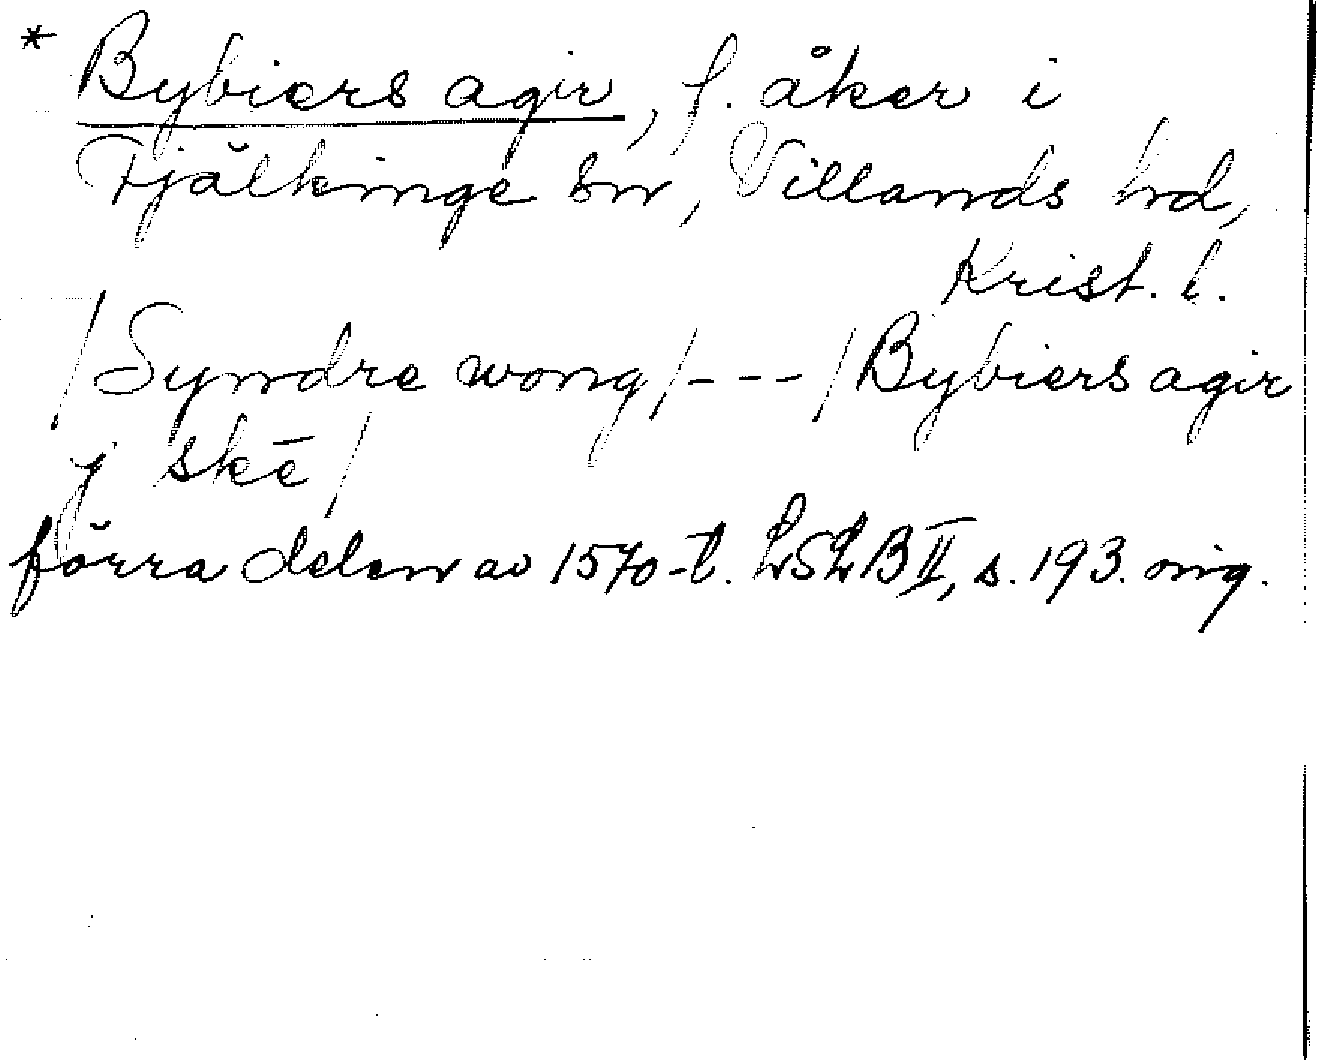 * Bybiers agir, f. åker i
Fjälkinge sn, Villands hd,
Krist. l.
/Syndre wong/---/Bybiers agir
j skē/
förra delen av 1570-t. LSLB II, s. 193. orig.